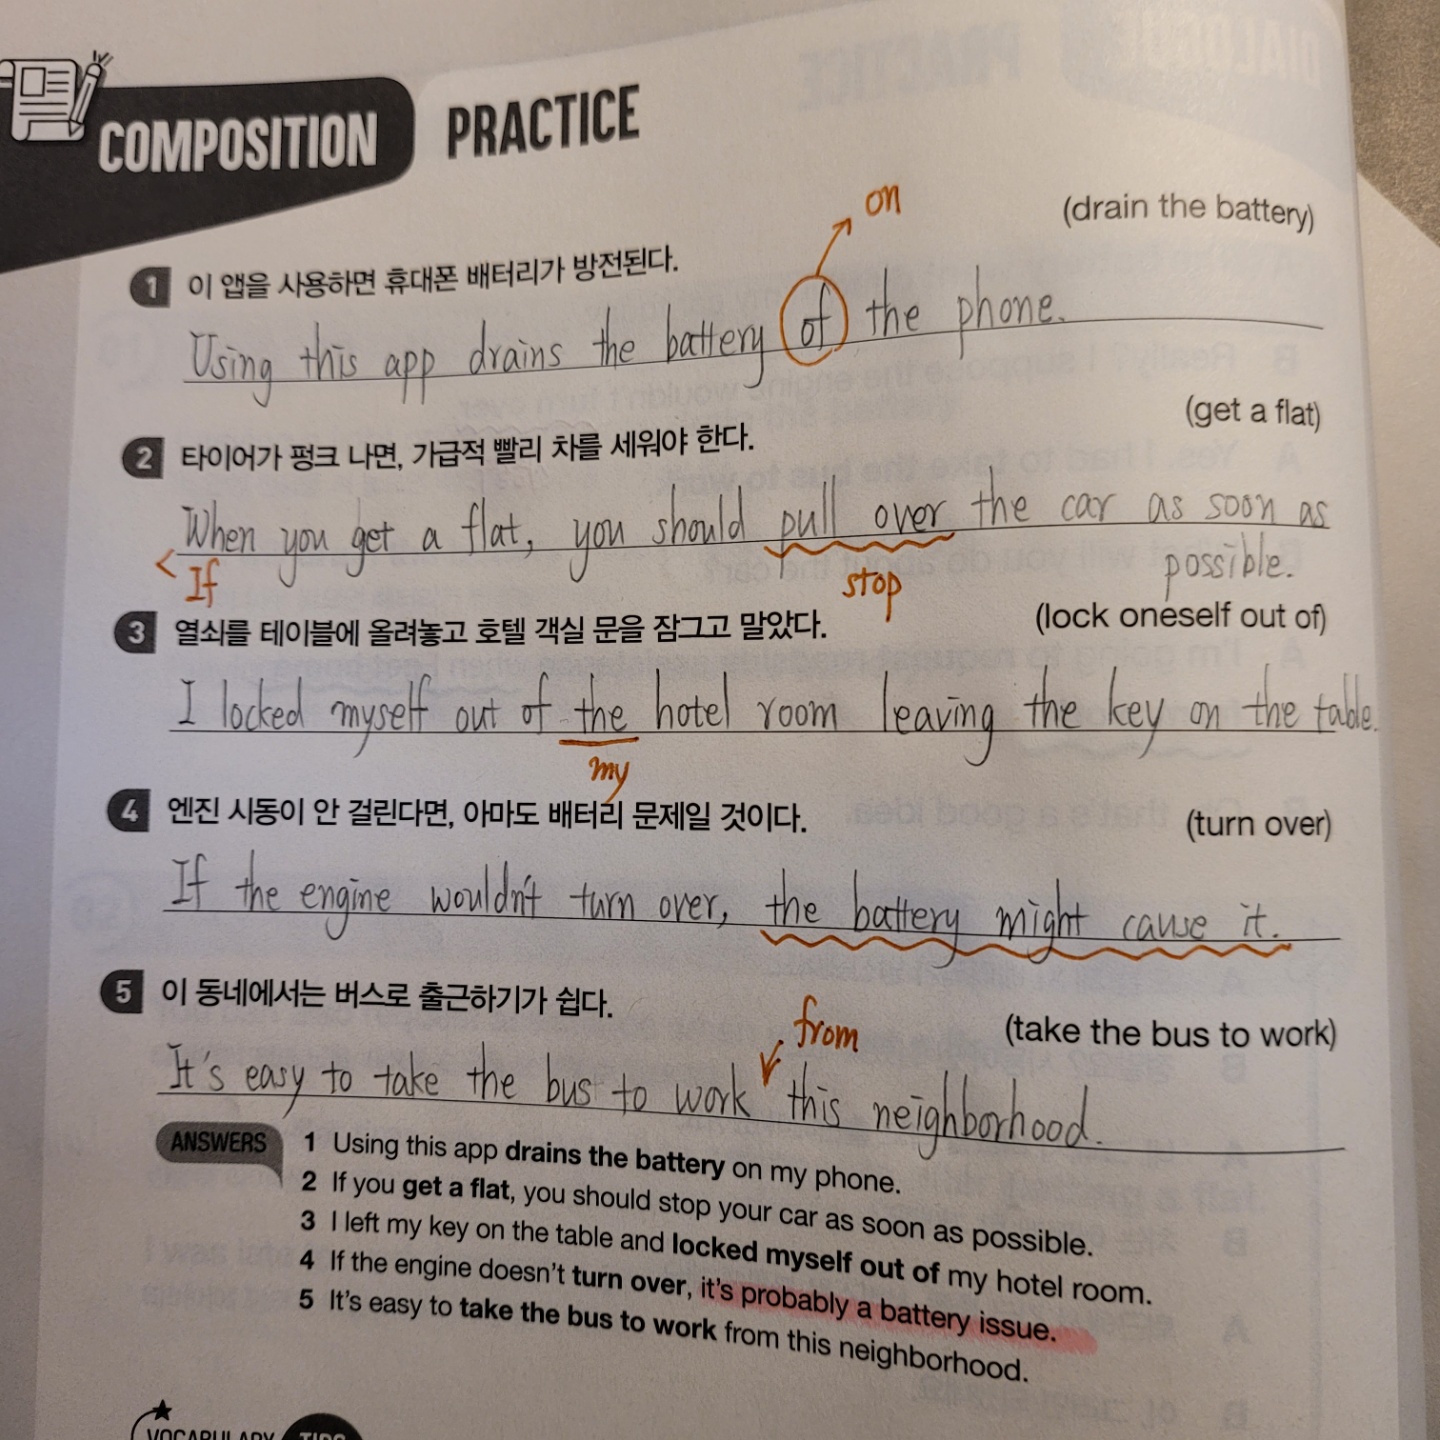 COMPOSITION PRACTICE
on
(drain the battery)
1 이 앱을 사용하면 휴대폰 배터리가 방전된다.
Using this app drains the battery of the phone.
(get a flat)
2 타이어가 펑크 나면, 가급적 빨리 차를 세워야 한다.
When you get a flat, you should pull over the car as soon as
possible.
< If
stop
(lock oneself out of)
3 열쇠를 테이블에 올려놓고 호텔 객실 문을 잠그고 말았다.
I locked myself out of the hotel room leaving the key on the table.
my
4 엔진 시동이 안 걸린다면, 아마도 배터리 문제일 것이다.
(turn over)
If the engine wouldn't turn over, the battery might cause it.
5 이 동네에서는 버스로 출근하기가 쉽다.
from
(take the bus to work)
It's easy to take the bus to work this neighborhood.
ANSWERS
1 Using this app drains the battery on my phone.
2 If you get a flat, you should stop your car as soon as possible.
3 I left my key on the table and locked myself out of my hotel room.
4 If the engine doesn't turn over, it's probably a battery issue.
5 It's easy to take the bus to work from this neighborhood.
VOCABULARY TIPS